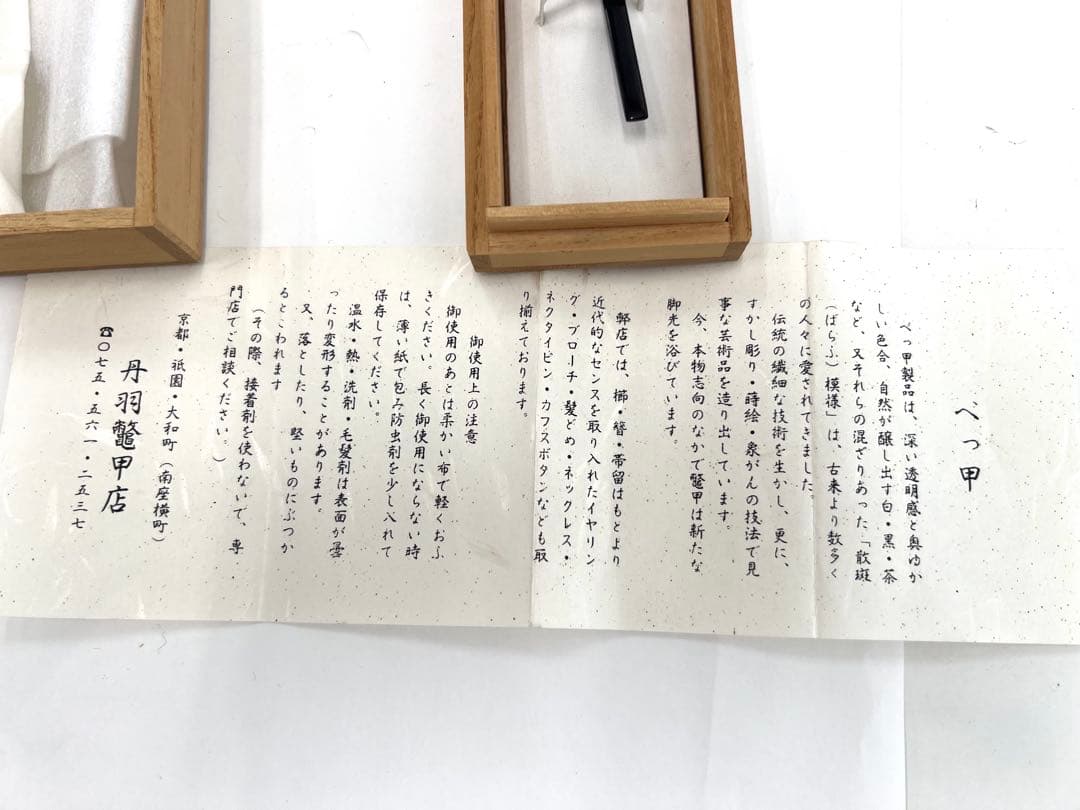 べっ甲
べっ甲製品は、深い透明感と奥ゆか
しい色合、自然が醸し出す白・黒・茶
など、又それらの混ざりあった「散斑
（ばらふ）模様」は、古来より数多く
の人々に愛されてきました。
伝統の繊細な技術を生かし、更に、
すかし彫り・蒔絵・象がんの技法で見
事な芸術品を造り出しています。
今、本物志向のなかで鼈甲は新たな
脚光を浴びています。
弊店では、櫛・簪・帯留はもとより
近代的なセンスを取り入れたイヤリン
グ・ブローチ・髪どめ・ネックレス・
ネクタイピン・カフスボタンなども取
り揃えております。
御使用上の注意
御使用のあとは柔かい布で軽くおふ
きください。長く御使用にならない時
は、薄い紙で包み防虫剤を少し入れて
保存してください。
温水・熱・洗剤・毛髪剤は表面が曇
ったり変形することがあります。
又、落としたり、堅いものにぶつか
るとこわれます
（その際、接着剤を使わないで、専
門店でご相談ください。）
京都・祇園・大和町（南座横町）
丹羽鼈甲店
☎〇七五・五六一・二五三七